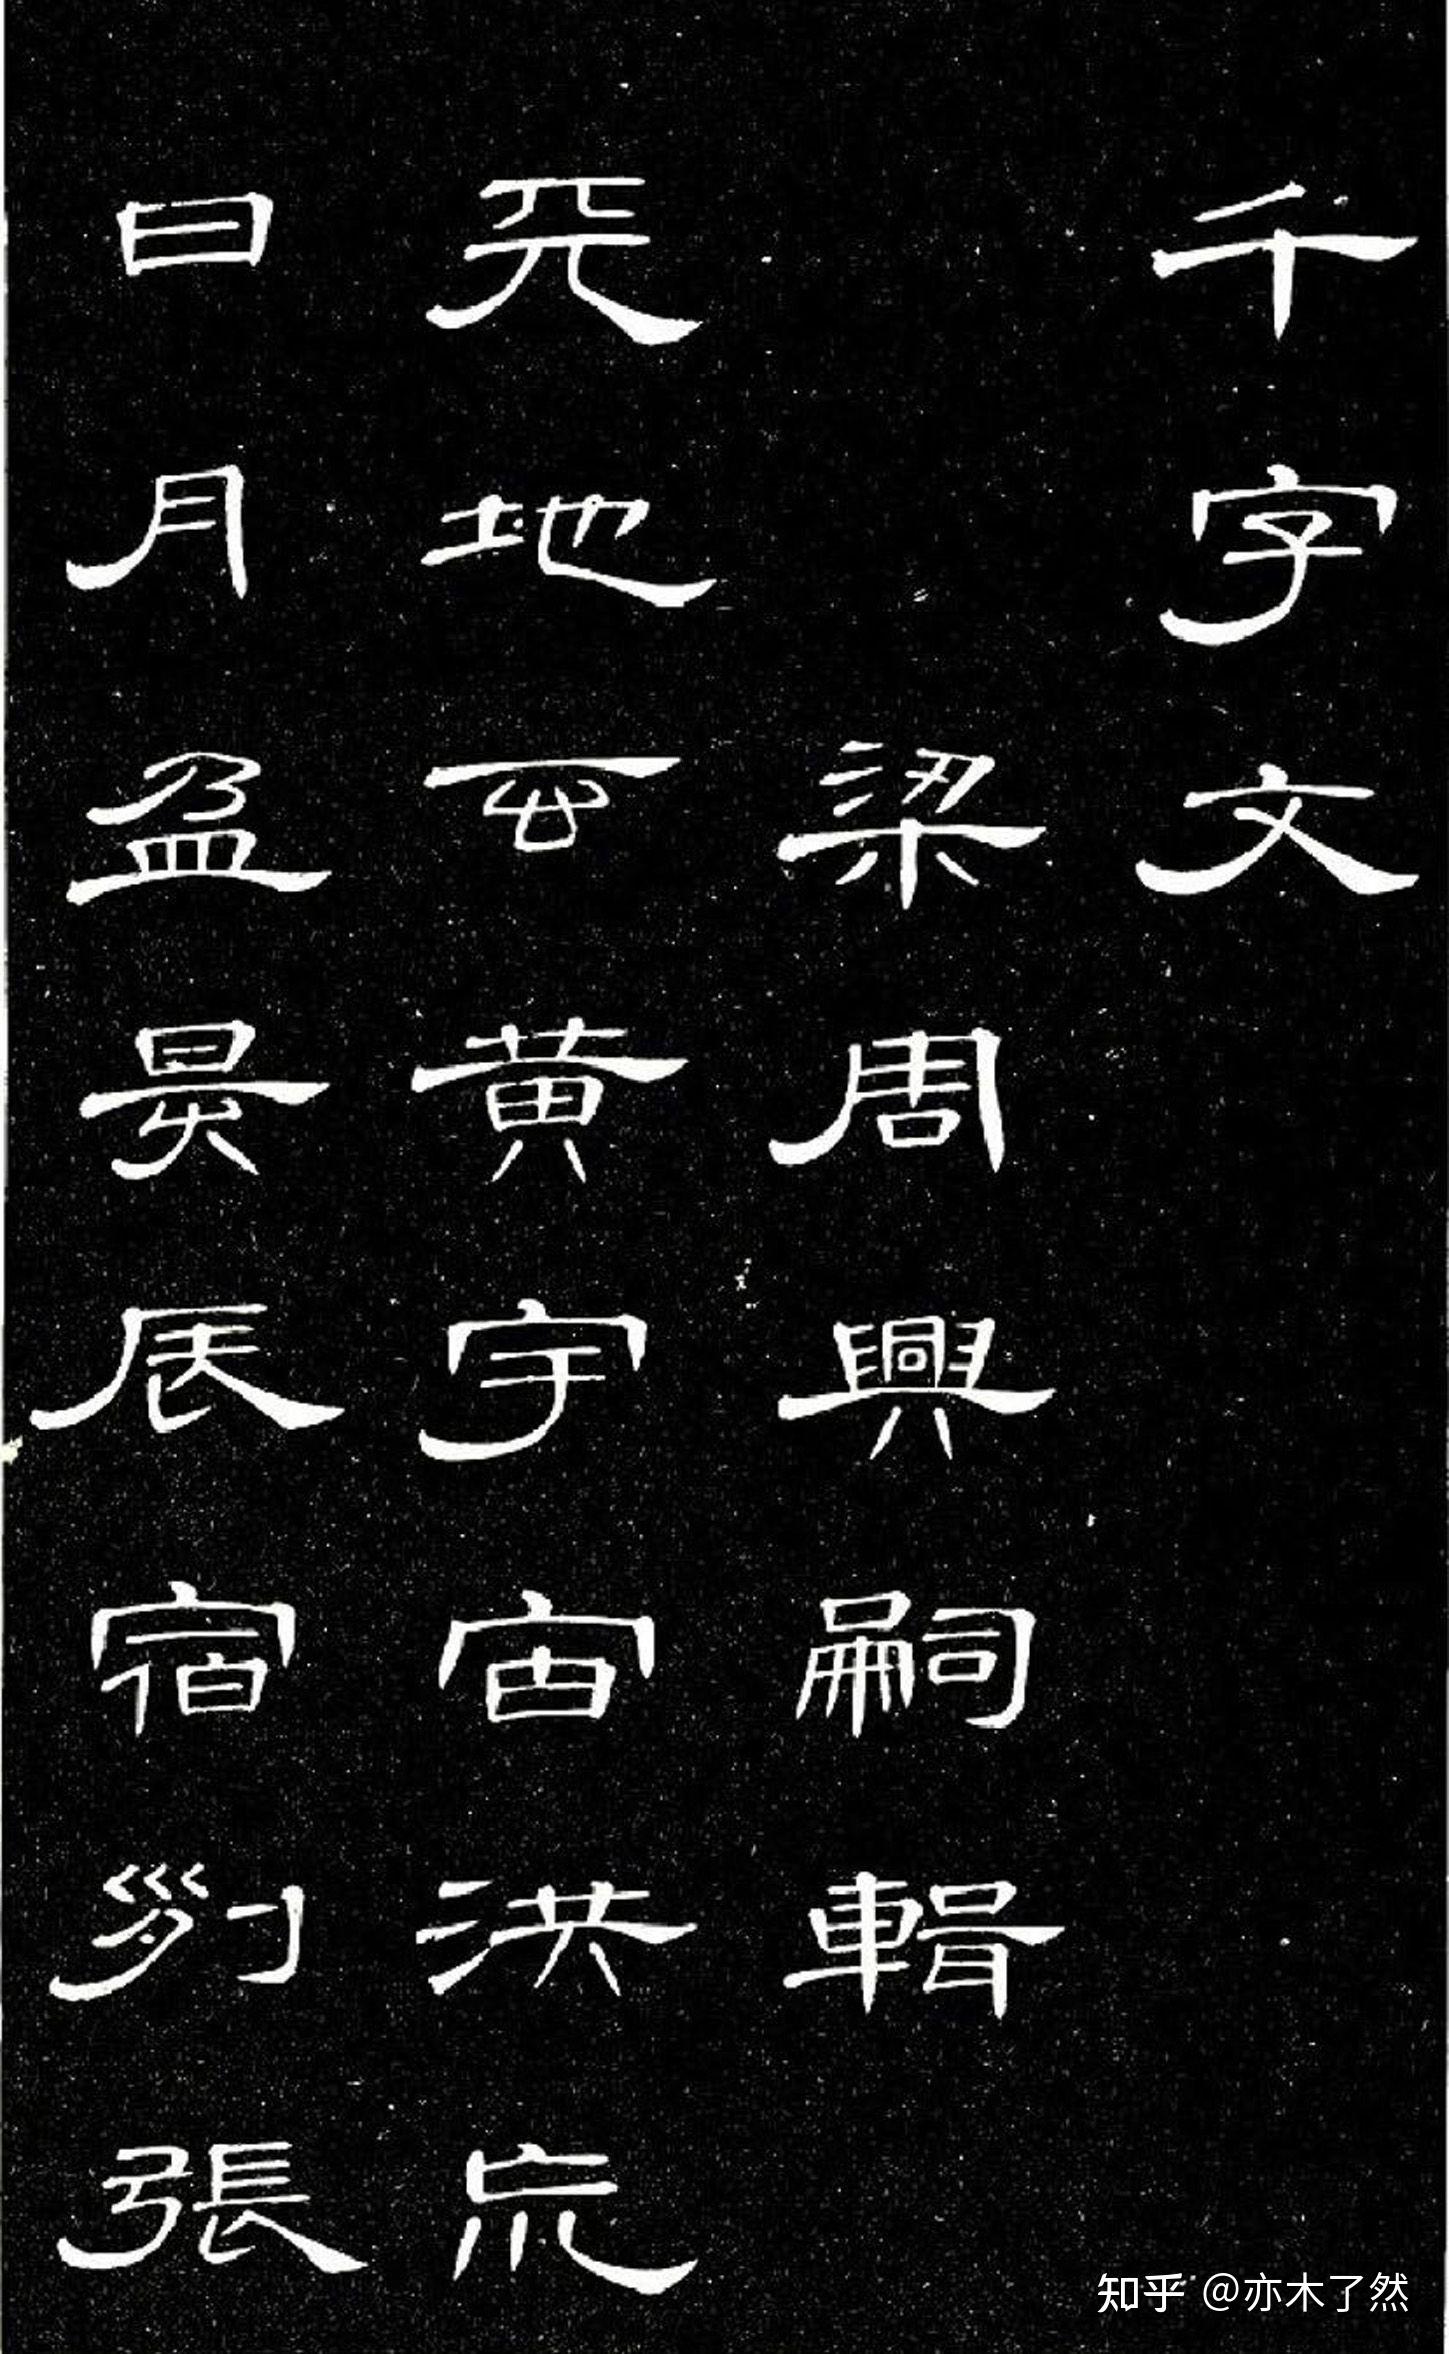 千字文
梁周興嗣輯
天地玄黄宇宙洪巟
日月盈昃辰宿列張
知乎 @亦木了然